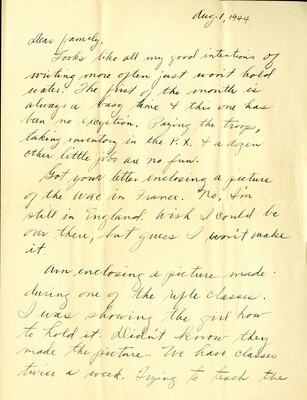 Aug. 1, 1944
Dear Family,
Looks like all my good intentions of
writing more often just won't hold
water. The first of the month is
always a busy time & this one has
been no exception. Paying the troops,
taking inventory in the P.X. & a dozen
other little jobs are no fun.
Got your letter enclosing a picture
of the Wac in France. No, I'm
still in England. Wish I could be
over there, but guess I won't make
it.
Am enclosing a picture made
during one of the rifle classes.
I was showing the girl how
to hold it. Didn't know they
made the picture. We have classes
twice a week. Trying to teach the